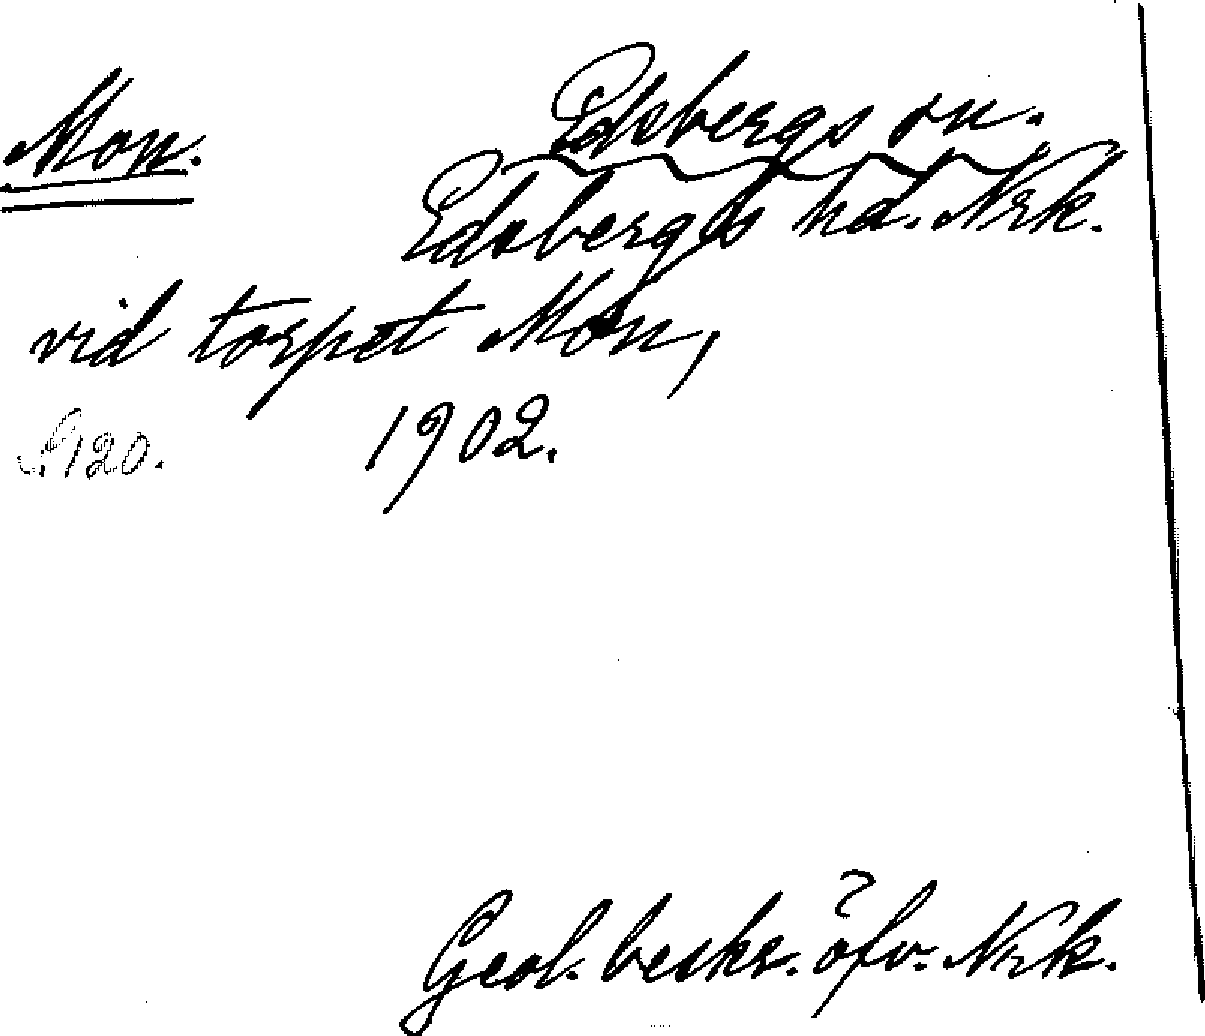 Mon. Edsbergs sn.
Edsbergs hd. Nrk.
vid torpet Mon,
S. 120. 1902.
Geol. beskr. öfv. Nrk.